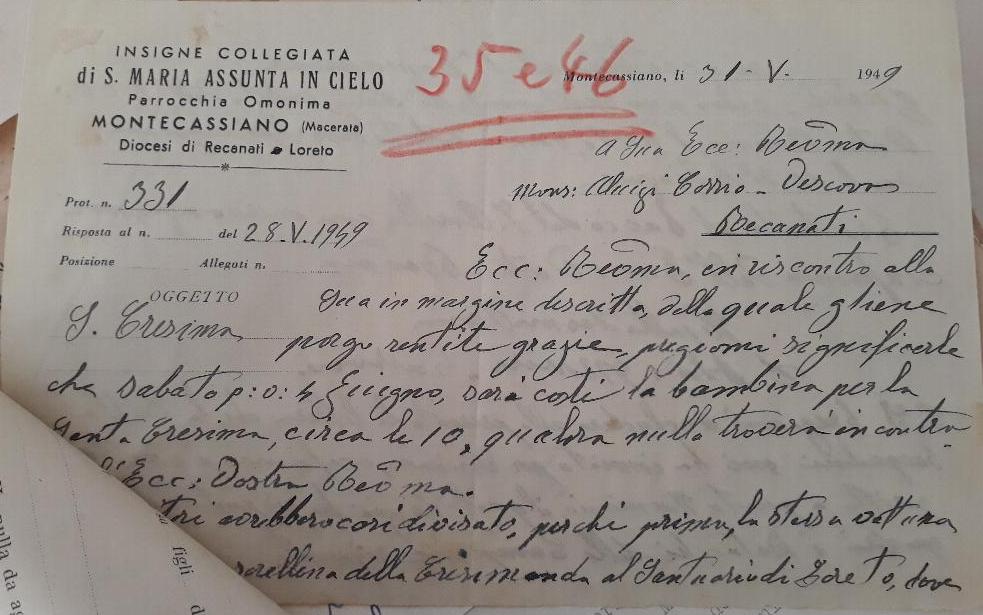 INSIGNE COLLEGIATA
di S. MARIA ASSUNTA IN CIELO
Parrocchia Omonima
MONTECASSIANO (Macerata)
Diocesi di Recanati e Loreto
35 e 46
Montecassiano, li 31-V- 1949
Prot. n. 331
Risposta al n. del 28.V.1949
Posizione Allegati n.
OGGETTO
S. Cresima
A Sua Ecc: Rev̄ma
Mons: Aluigi Cossio - Vescovo
Recanati
Ecc: Rev̄ma, in riscontro alla
Sua in margine descritta, della quale gliene
porgo sentite grazie, pregiomi significarle
che sabato p: v: 4 Giugno, sarà costì la bambina per la
Santa Cresima, circa le 10, qualora nulla troverà in contra-
Ecc: Vostra Rev̄ma.
avrebbero così divisato, perchè prima, la stessa vettura
sorellina della Cresimanda al Santuario di Loreto, dove
figli
nulla da